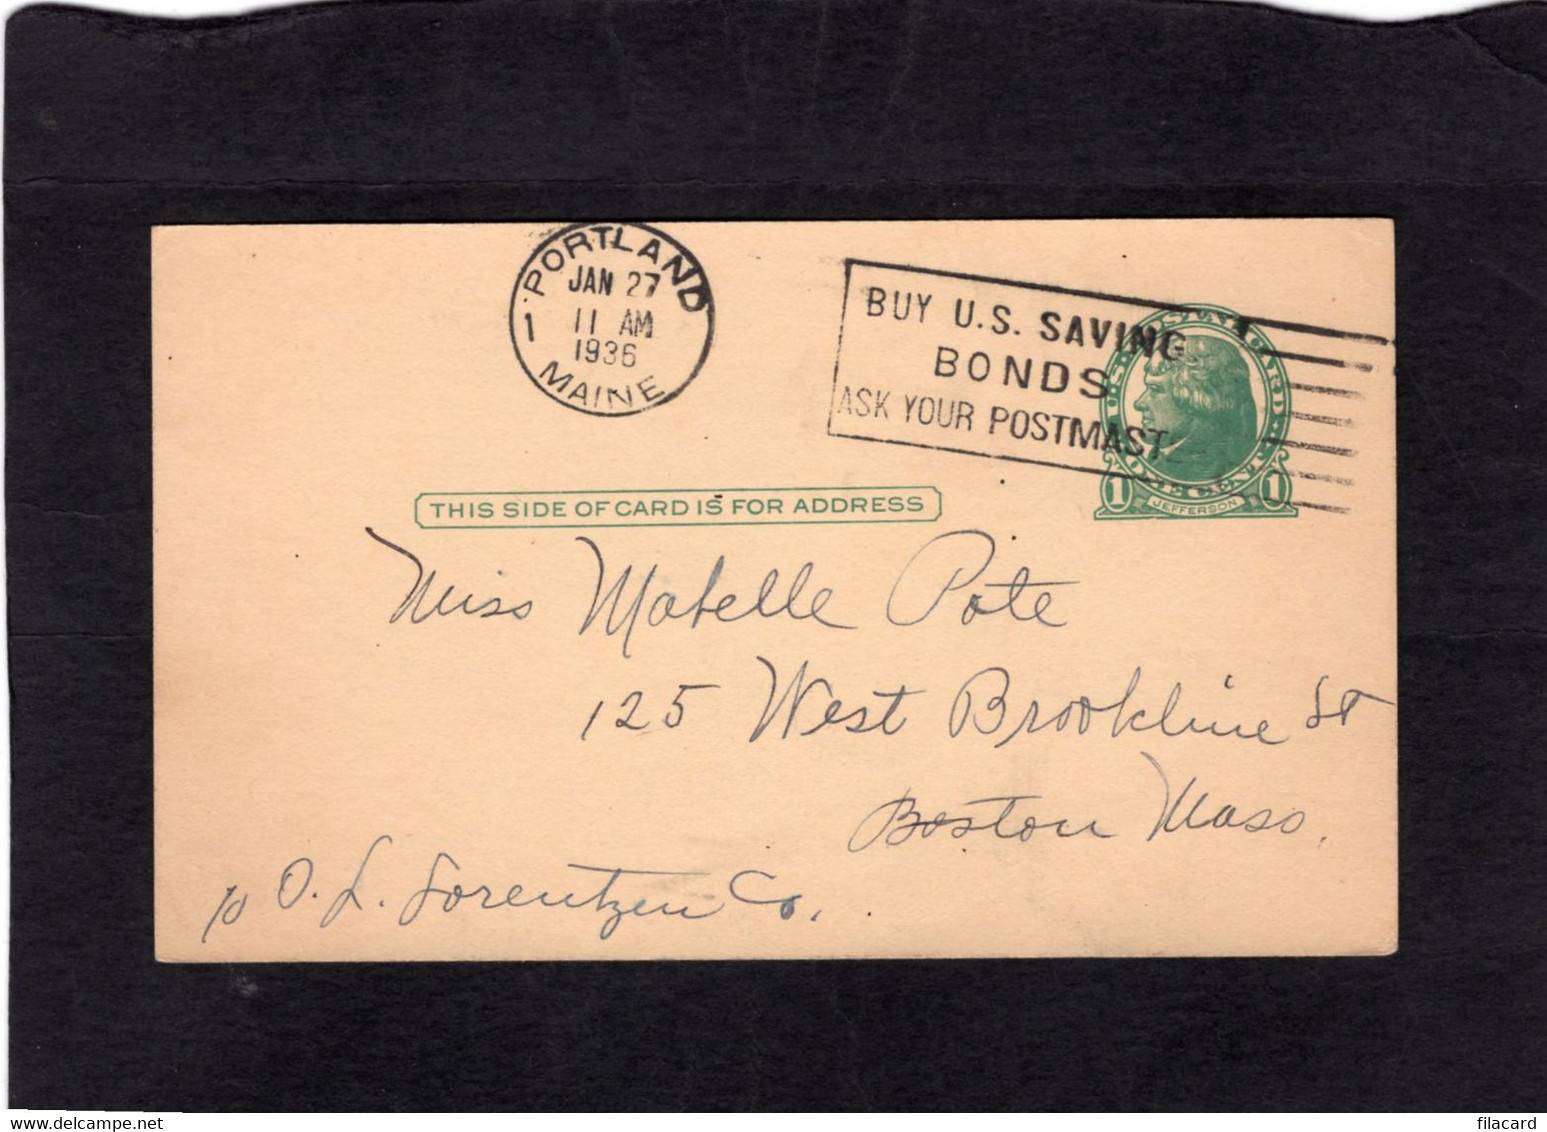 PORTLAND
JAN 27
11 AM
1936
1
MAINE
BUY U.S. SAVING
BONDS
ASK YOUR POSTMAST
U.S. POSTAL CARD
ONE CENT
1 JEFFERSON 1
THIS SIDE OF CARD IS FOR ADDRESS
Miss Mabelle Pote
125 West Brookline St
Boston Mass.
c/o O. L. Lorentzen Co.
www.delcampe.net
filacard